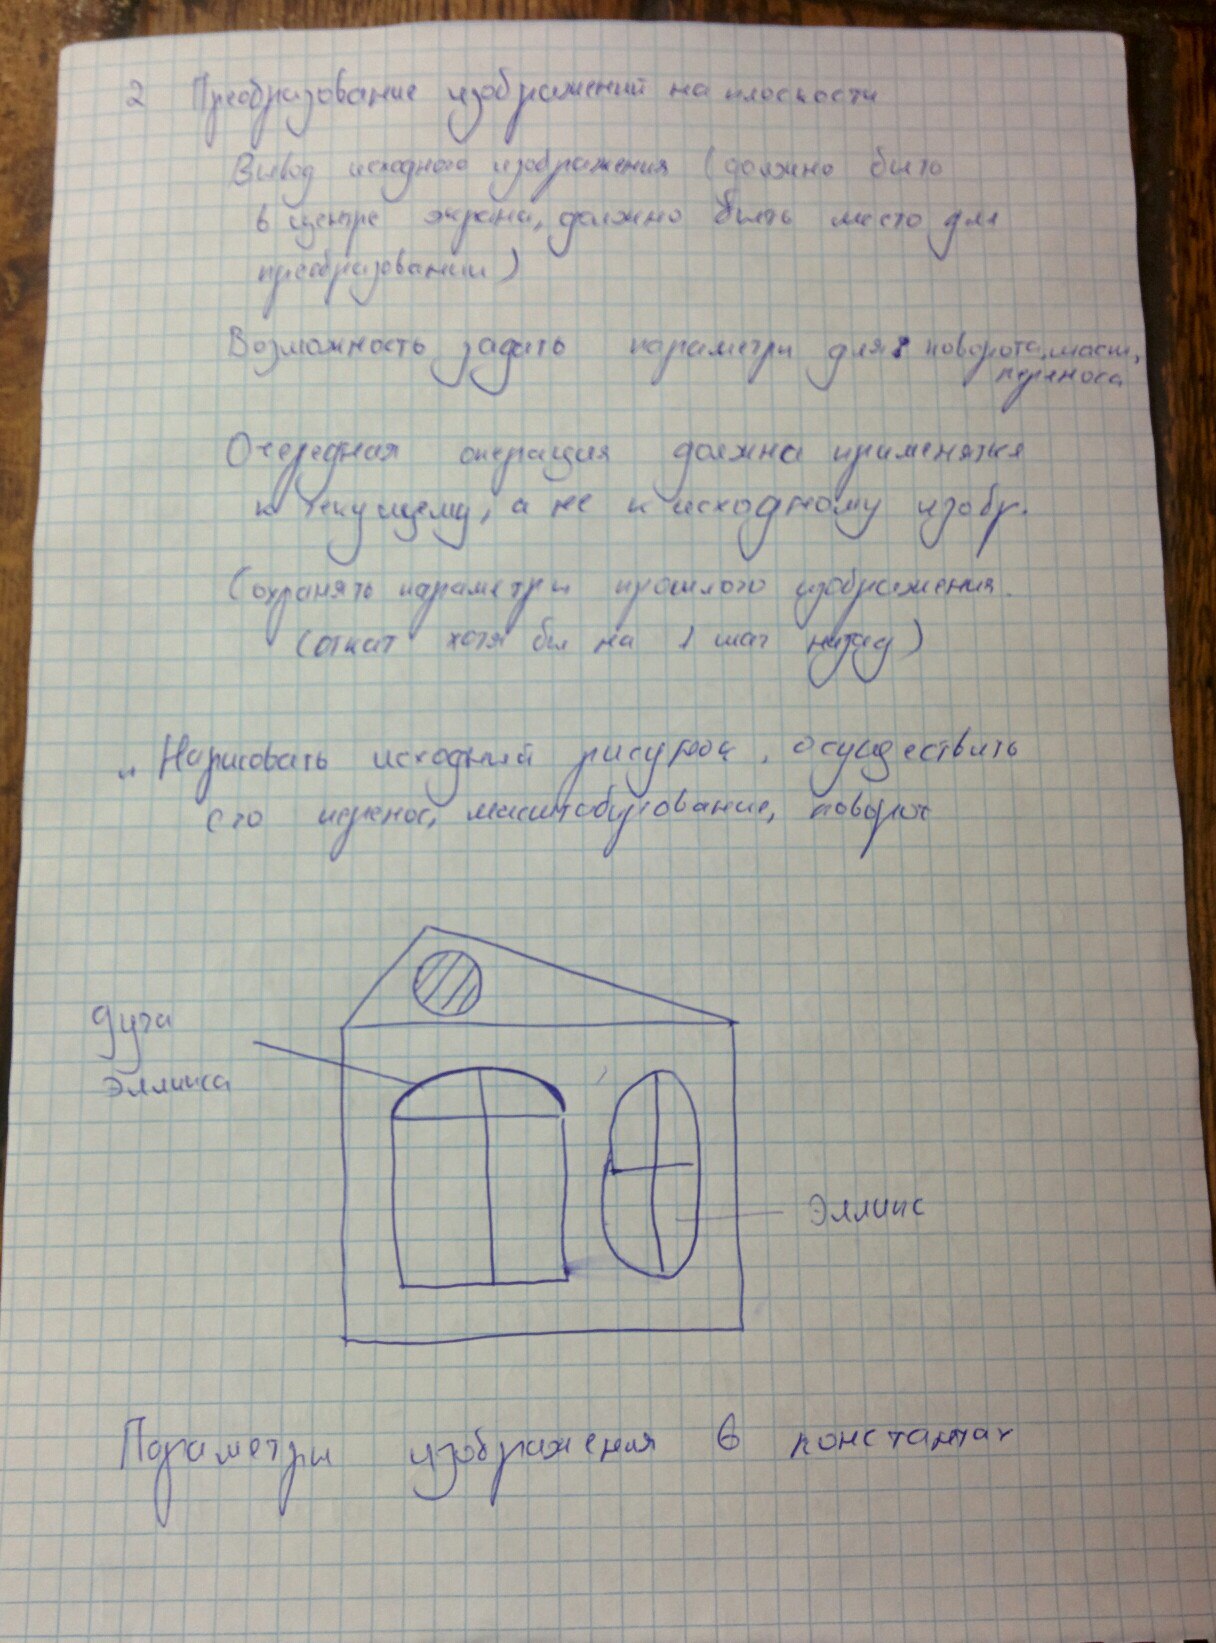 2 Преобразование изображений на плоскости
Вывод исходного изображения (должно быть
в центре экрана, должно быть место для
преобразовании)
Возможность задать параметры для: поворота, масш,
переноса
Очередная операция должна применяться
к текущему, а не к исходному изобр.
Сохранять параметры прошлого изображения.
(откат хотя бы на 1 шаг назад)
„ Нарисовать исходный рисунок, осуществить
его перенос, масштабирование, поворот
дуга
эллипса
Эллипс
Параметры изображения в константах